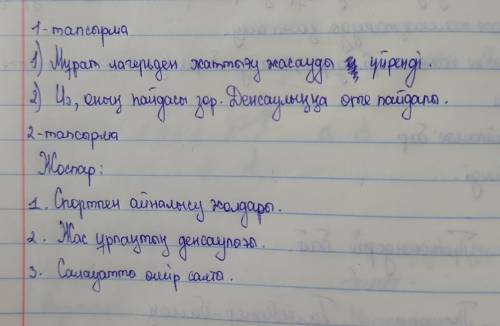 1-тапсырма
1) Мурат лагерьден жаттығу жасауды үйренді.
2) Иә, оның пайдасы зор. Денсаулыққа өте пайдалы.
2-тапсырма
Жоспар:
1. Спортпен айналысу жолдары.
2. Жас ұрпақтың денсаулығы.
3. Салауатты өмір салты.